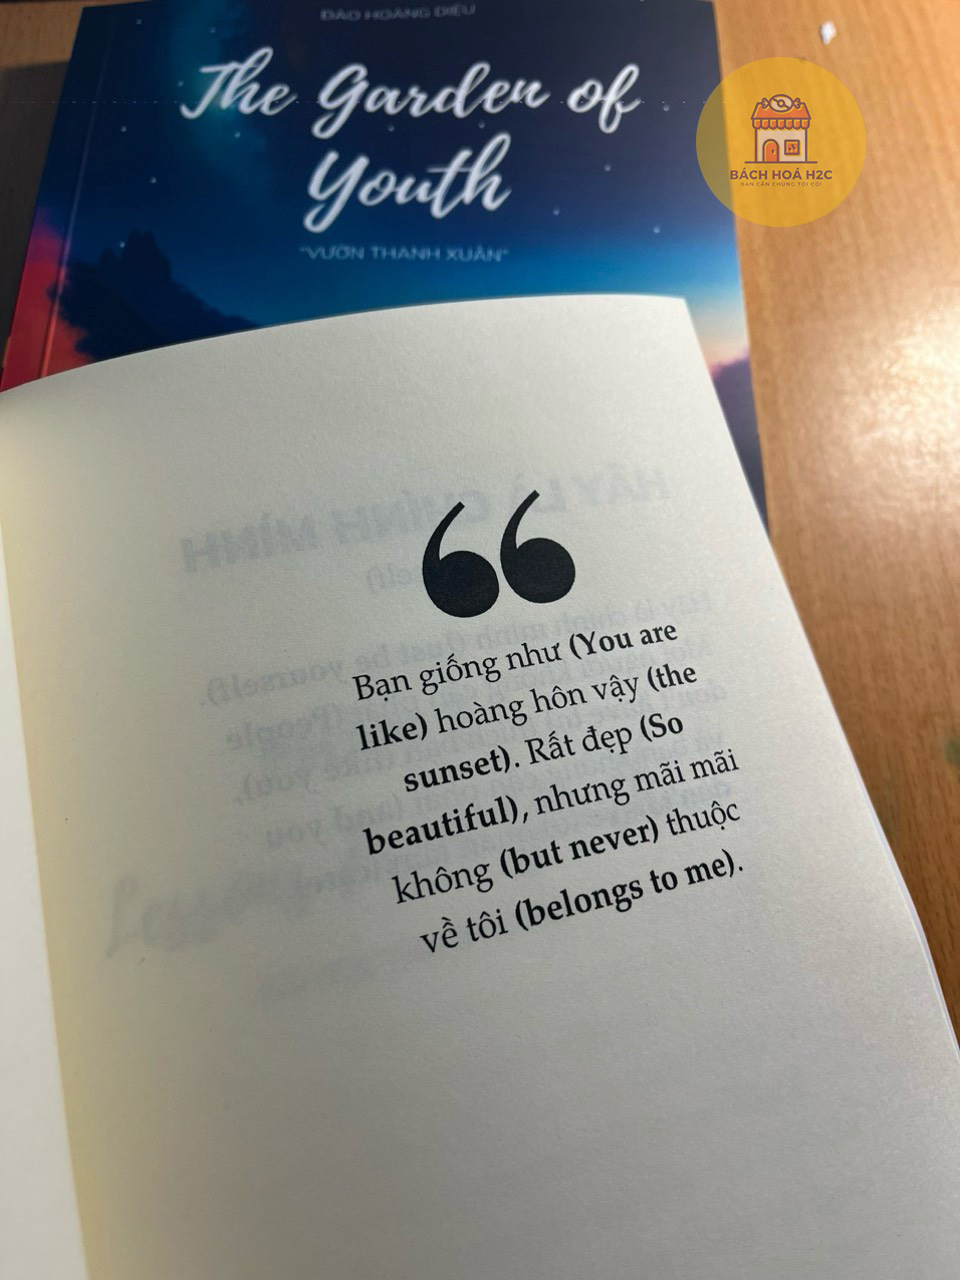 ĐÀO HOÀNG DIỆU
The Garden of
Youth
"VƯỜN THANH XUÂN"
BÁCH HOÁ H2C
BẠN CẦN CHÚNG TÔI CÓ!
HÃY LÀ CHÍNH MÌNH
“
Bạn giống như (You are
like) hoàng hôn vậy (the
sunset). Rất đẹp (So
beautiful), nhưng mãi mãi
không (but never) thuộc
về tôi (belongs to me).